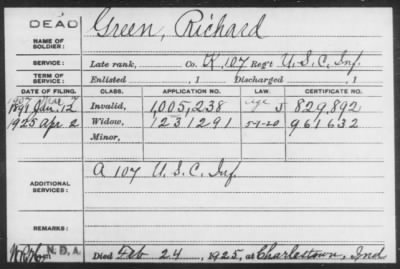 DEAD
NAME OF SOLDIER: Green, Richard
SERVICE: Late rank, Co. K, 107 Reg't U.S.C. Inf.
TERM OF SERVICE: Enlisted , 1 Discharged , 1
DATE OF FILING. CLASS. APPLICATION NO. LAW. CERTIFICATE NO.
1891 Jan. 12 Invalid, 1,005,238 829,892
1925 Apr. 2 Widow, 1231291 5-1-20 961632
Minor,
A 107 U.S.C. Inf.
ADDITIONAL SERVICES:
REMARKS:
N.D.A.
Died Feb 24, 1925, at Charlestown, Ind